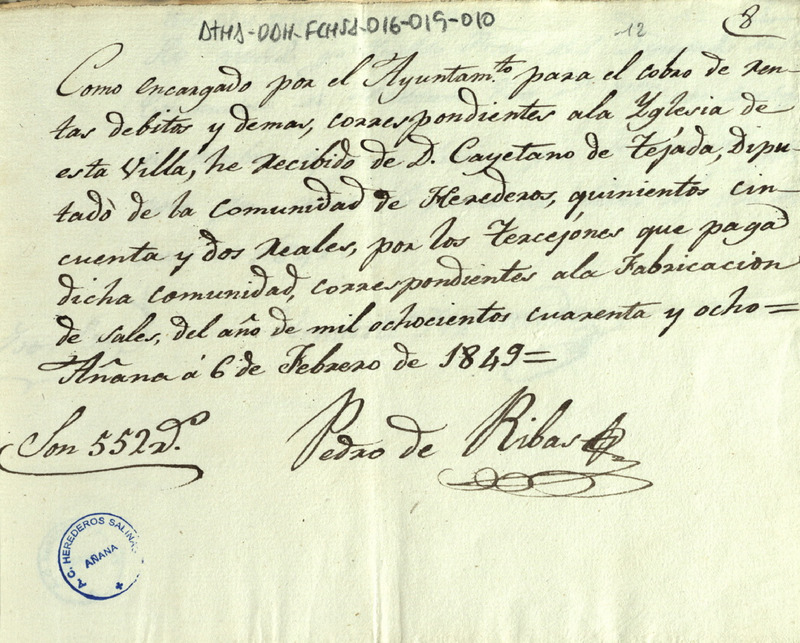 ATHA-DDH-FCHSA-016-019-010
12
8
Como encargado por el Ayuntam.to para el cobro de ren-
tas debitos y demas, correspondientes ala Yglesia de
esta Villa, he recibido de D. Cayetano de Tejada, Dipu-
tado de la Comunidad de Herederos, quinientos cin-
cuenta y dos reales, por los Tercejónes que paga
dicha comunidad, correspondientes ala Fabricacion
de sales, del año de mil ochocientos cuarenta y ocho=
Añana á 6 de Febrero de 1849=
Son 552 r.s
Pedro de Ribas
A.C. HEREDEROS SALINAS
AÑANA